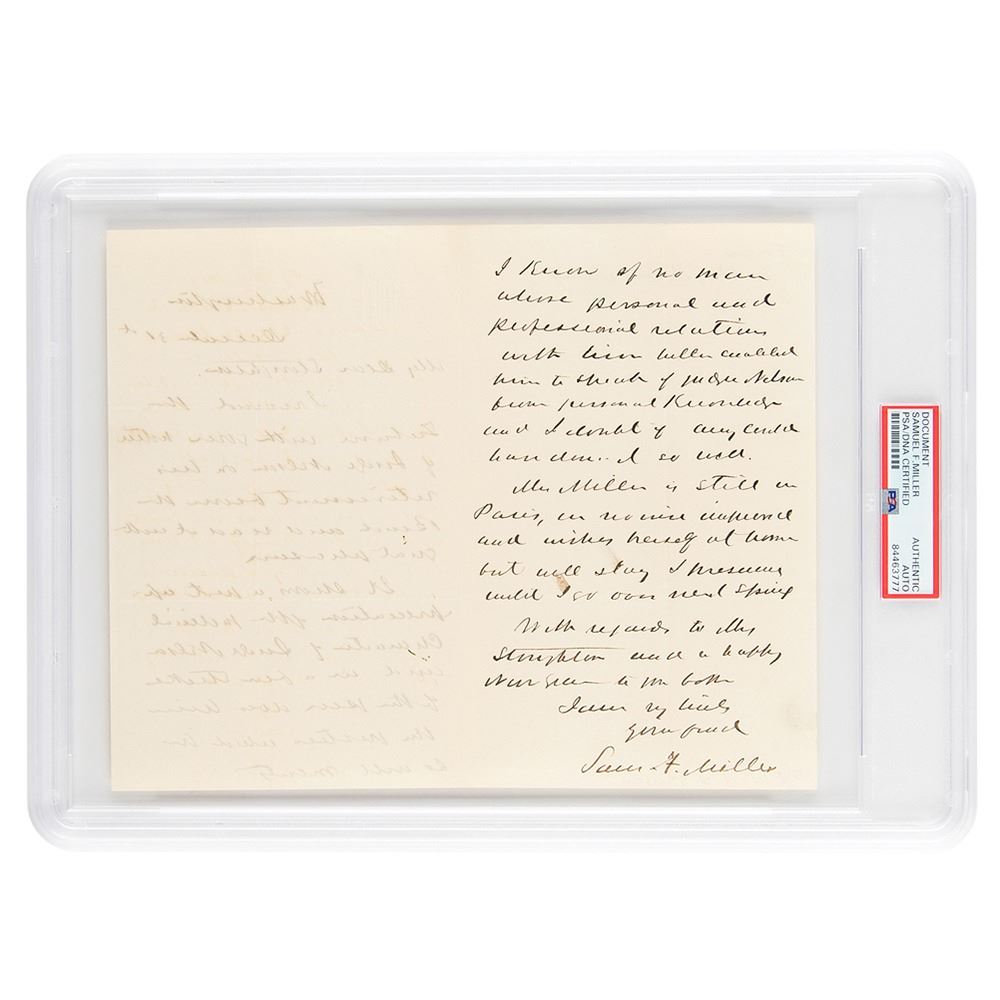 Washington
December 31st
My Dear Stoughton.
I received the
Tribune with your notice
of Judge Nelson on his
retirement from the
Bench and read it with
great pleasure
It shows a just ap-
preciation of the judicial
Character of Judge Nelson
and in a few strokes
of the pen does him
the justice which he
so well merits
I Know of no man
whose personal and
professional relations
with him better enabled
him to speak of Judge Nelson
from personal Knowledge
and I doubt if any could
have done it so well.
Mrs Miller is still in
Paris, in no wise improved
and wishes herself at home
but will stay I presume
until I go over next Spring
With regards to Mrs
Stoughton and a happy
New Year to you both
I am
Your friend
Sam. F. Miller
DOCUMENT
SAMUEL F. MILLER
PSA/DNA CERTIFIED
PSA
AUTHENTIC
AUTO
84463777